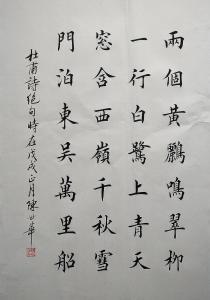 兩個黃鸝鳴翠柳
一行白鷺上青天
窓含西嶺千秋雪
門泊東吳萬里船
杜甫詩絕句時在戊戌正月陳世華